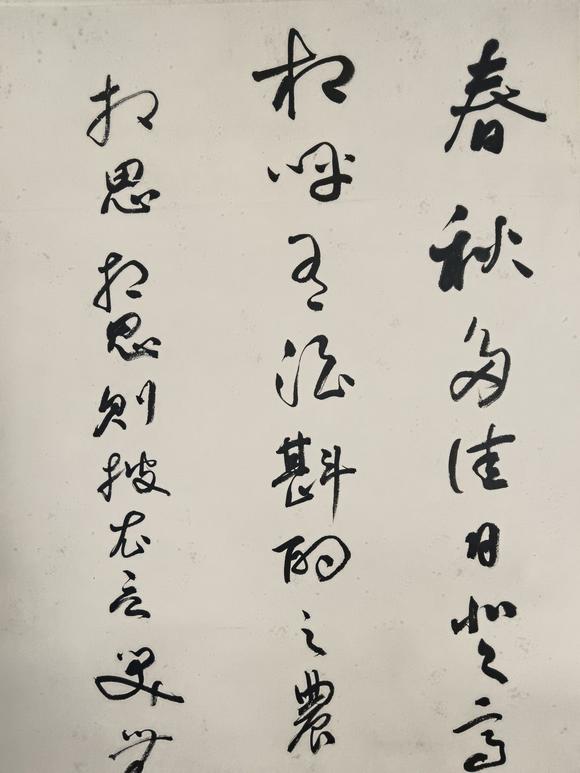 春秋多佳日登高
相呼有酒斟酌之農
相思相思則披衣言笑無